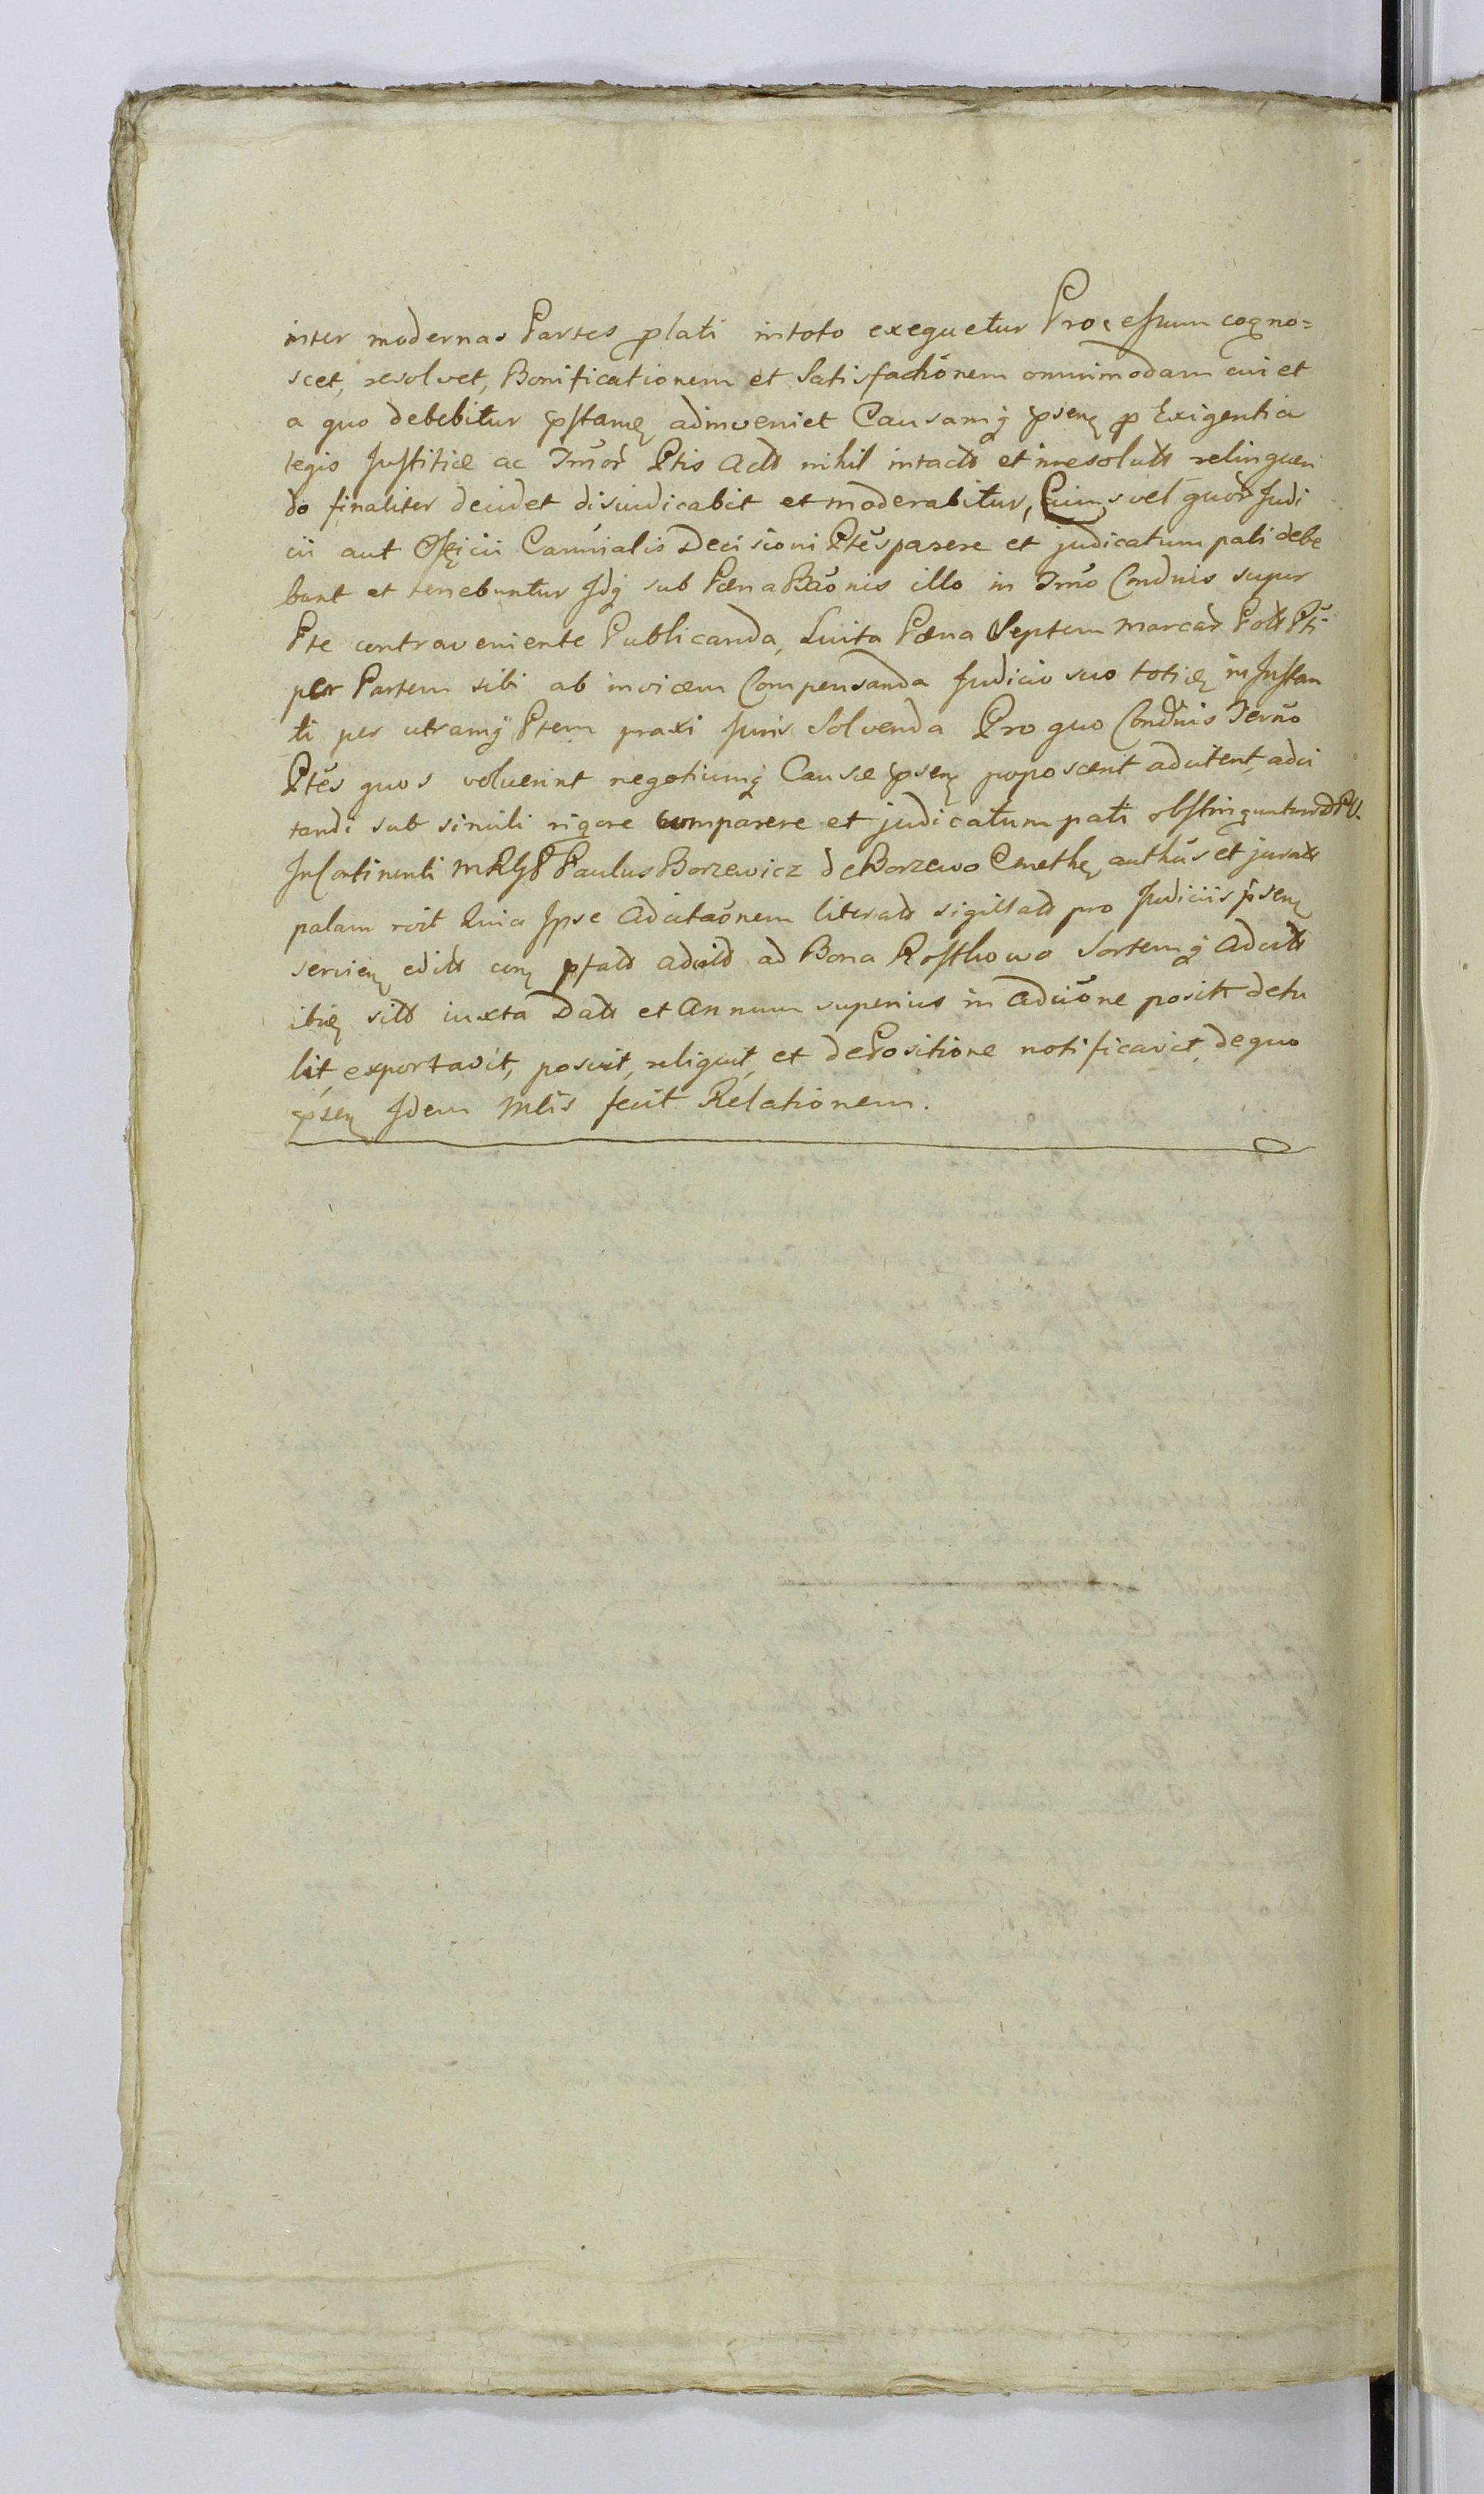 inter modernas Partes plati intoto exequetur Processum cogno=
scet, resolvet, Bonificationem et Satisfactiōnem omnimodam cui et
a quo debebitur pstamę adinveniet Causamq psenę p Exigentia
legis Justitiæ ac Tmōr Ptis Actt nihil intactt et irresolutt relinquen
do finaliter decidet disiudicabit et moderabitur, Cuiusvel quor Judi
cii aut Officii Camnialis Decisioni Ptēs parere et judicatum pati debe
bunt et tenebuntur Jdq sub Pæna Baōnis illo in Tmō Condnis super
Pte contraveniente Publicanda, Luita Pæna Septem Marcar Poll Pti
per Partem sibi ab invicem Compensanda Judicio suo totię in Instan
ti per utramq Ptem praxi Juris Solvenda Pro quo Condnis Termō
Ptēs quos voluerint negotiumq Causæ psenę poposcerit adcitent, adci
tandi sub simili rigore comparere et judicatum pati obstringuntur
InContinenti MRGP Paulus Borzewicz de Borzewo Cmethę authūs et juratt
palam rcit Quia Jpse Adcitaōnem literatt sigillatt pro Judiciis psenę
servienę editt cum pfatt adcitt ad Bona Rosthowo Sortemq Adcitt
ibię sitt iuxta Datt et Annum superius in Adciōne positt detu
lit, exportavit, posuit, reliquit, et dePositione notificavit, de quo
psenę Jdem Mlis fecit Relationem.